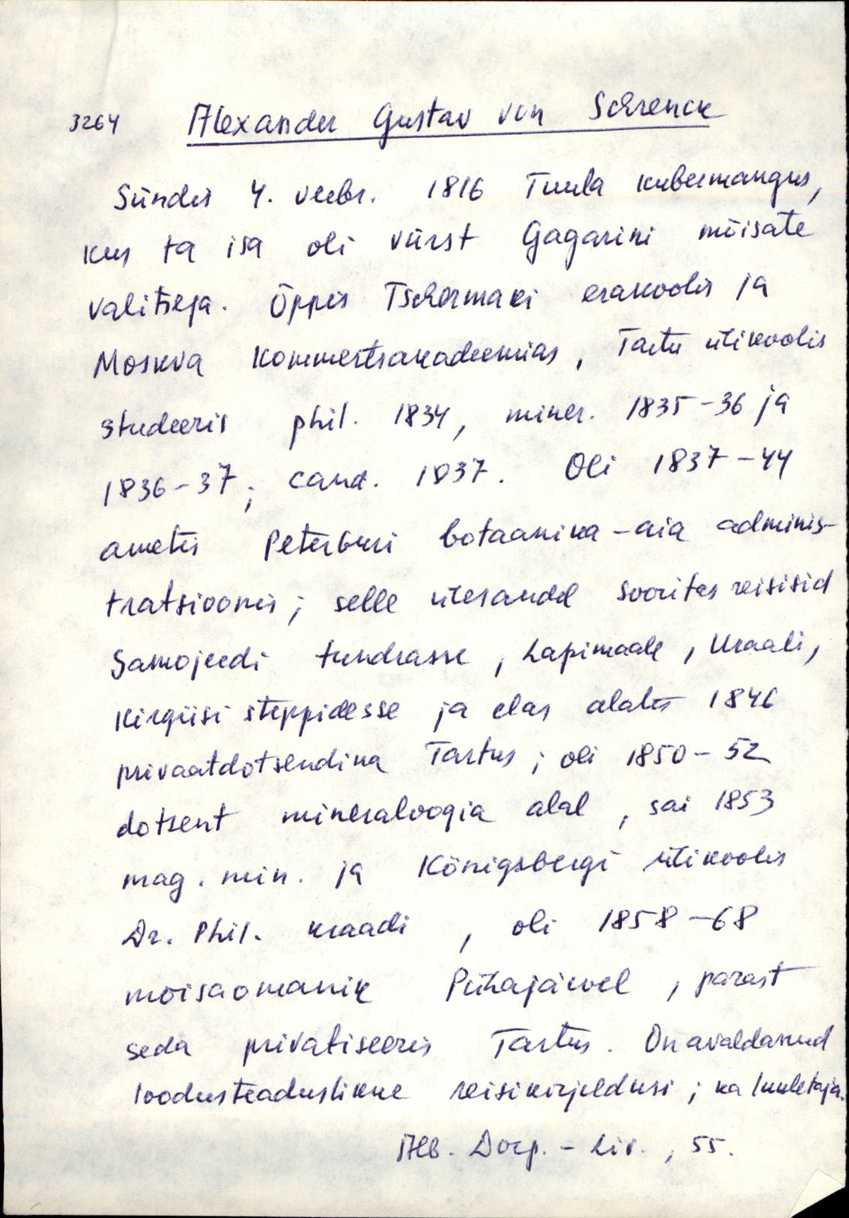 3264 Alexander Gustav von Schrenck
Sündis 4. veebr. 1816 Tuula kubermangus,
kus ta isa oli vürst Gagarini mõisate
valitseja. Õppis Tschermaki erakoolis ja
Moskva Kommertsakadeemias, Tartu ülikoolis
studeeris phil. 1834, miner. 1835-36 ja
1836-37; cand. 1837. Oli 1837-44
ametis Peterburi botaanika-aia adminis-
tratsioonis; selle ülesandel sooritas reisisid
Samojeedi tundrasse, Lapimaale, Uraali,
Kirgiisi steppidesse ja elas alates 1846
privaatdotsendina Tartus; oli 1850-52
dotsent mineraloogia alal, sai 1853
mag. min. ja Königsbergi ülikoolis
Dr. Phil. kraadi, oli 1858-68
mõisaomanik Pühajärvel, pärast
seda privatiseeris Tartus. On avaldanud
loodusteaduslikke reisikirjeldusi; ka luuletaja.
Alb. Dorp.-Liv., 55.